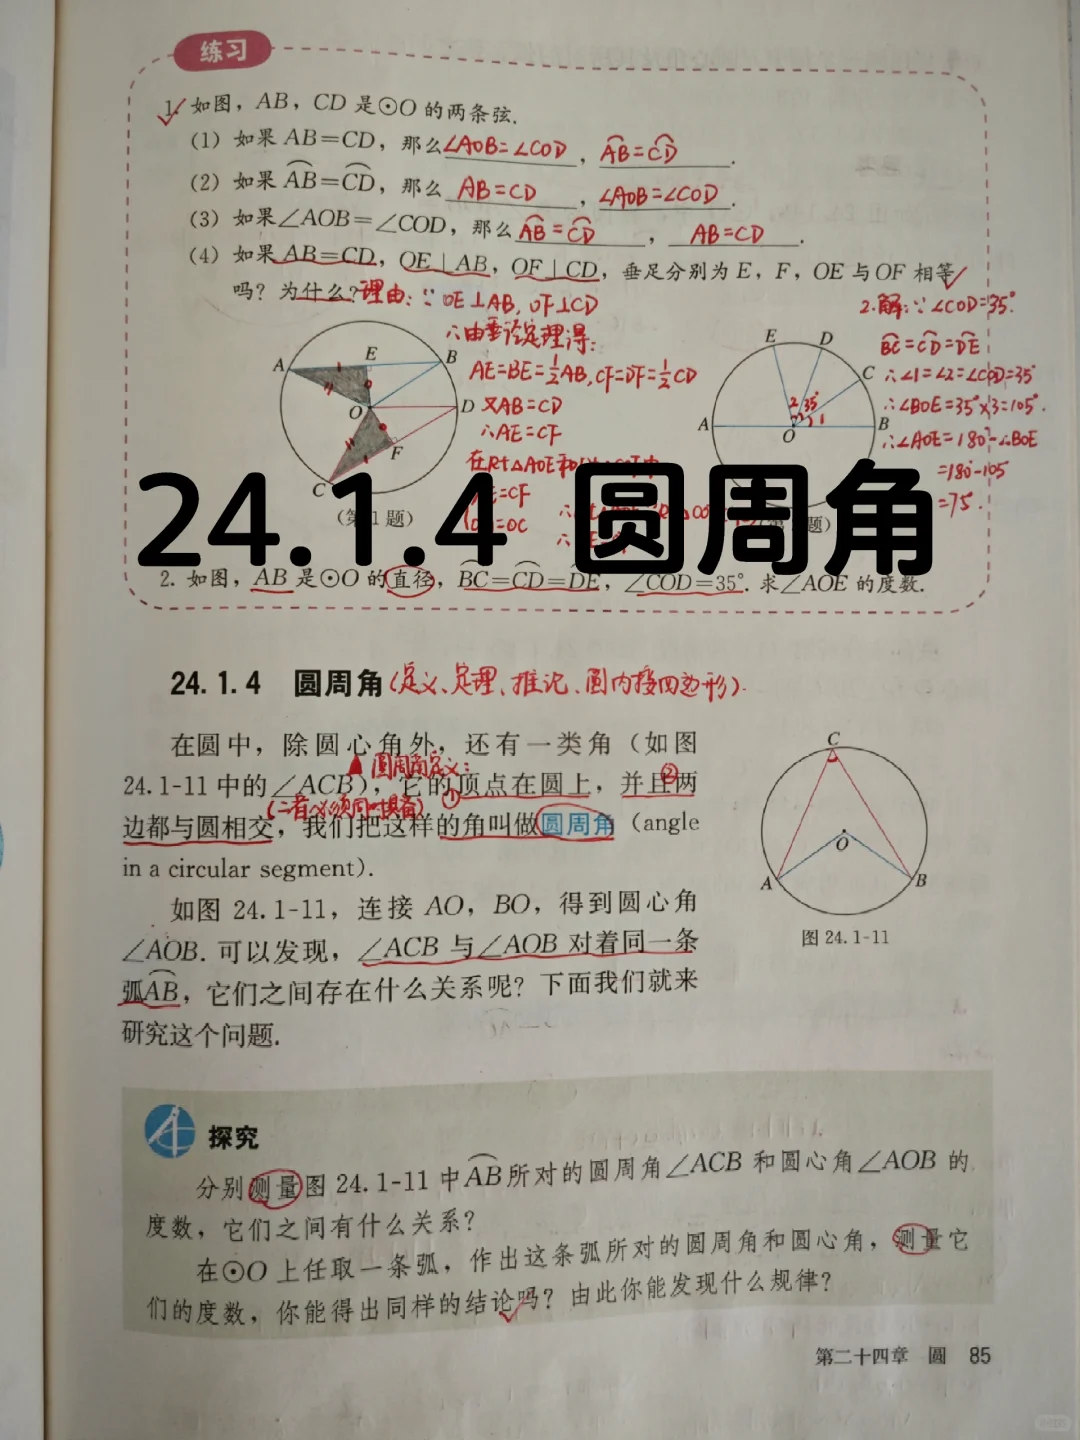 练习
1. 如图，AB，CD 是⊙O 的两条弦.
(1) 如果 AB=CD，那么∠AOB=∠COD，AB=CD.
(2) 如果 AB=CD，那么 AB=CD，∠AOB=∠COD.
(3) 如果∠AOB=∠COD，那么 AB=CD，AB=CD.
(4) 如果 AB=CD，OE⊥AB，OF⊥CD，垂足分别为 E，F，OE 与 OF 相等
吗？为什么？
理由：∵OE⊥AB，OF⊥CD
∴由垂径定理得：
AE=BE=½AB，CF=DF=½CD
又AB=CD
∴AE=CF
在Rt△AOE和
=CF
=OC
2.解：∵∠COD=35°
BC=CD=DE
∴∠1=∠2=∠COD=35°
∴∠BOE=35°×3=105°.
∴∠AOE=180°-∠BOE
=180°-105
=75°.
A
E
B
O
D
F
C
(第1题)
E
D
C
2
35°
1
A
O
B
题)
24.1.4 圆周角
2. 如图，AB 是⊙O 的直径，BC=CD=DE，∠COD=35°. 求∠AOE 的度数.
24.1.4 圆周角(定义、定理、推论、圆内接四边形).
圆周角定义：
在圆中，除圆心角外，还有一类角（如图
24.1-11 中的∠ACB），它的①顶点在圆上，②并且两
(二者必须同时具备)
边都与圆相交，我们把这样的角叫做圆周角（angle
in a circular segment).
如图 24.1-11，连接 AO，BO，得到圆心角
∠AOB. 可以发现，∠ACB 与∠AOB 对着同一条
弧AB，它们之间存在什么关系呢？下面我们就来
研究这个问题.
C
O
A
B
图 24.1-11
探究
分别测量图 24.1-11 中AB所对的圆周角∠ACB 和圆心角∠AOB 的
度数，它们之间有什么关系？
在⊙O 上任取一条弧，作出这条弧所对的圆周角和圆心角，测量它
们的度数，你能得出同样的结论吗？由此你能发现什么规律？
第二十四章 圆 85